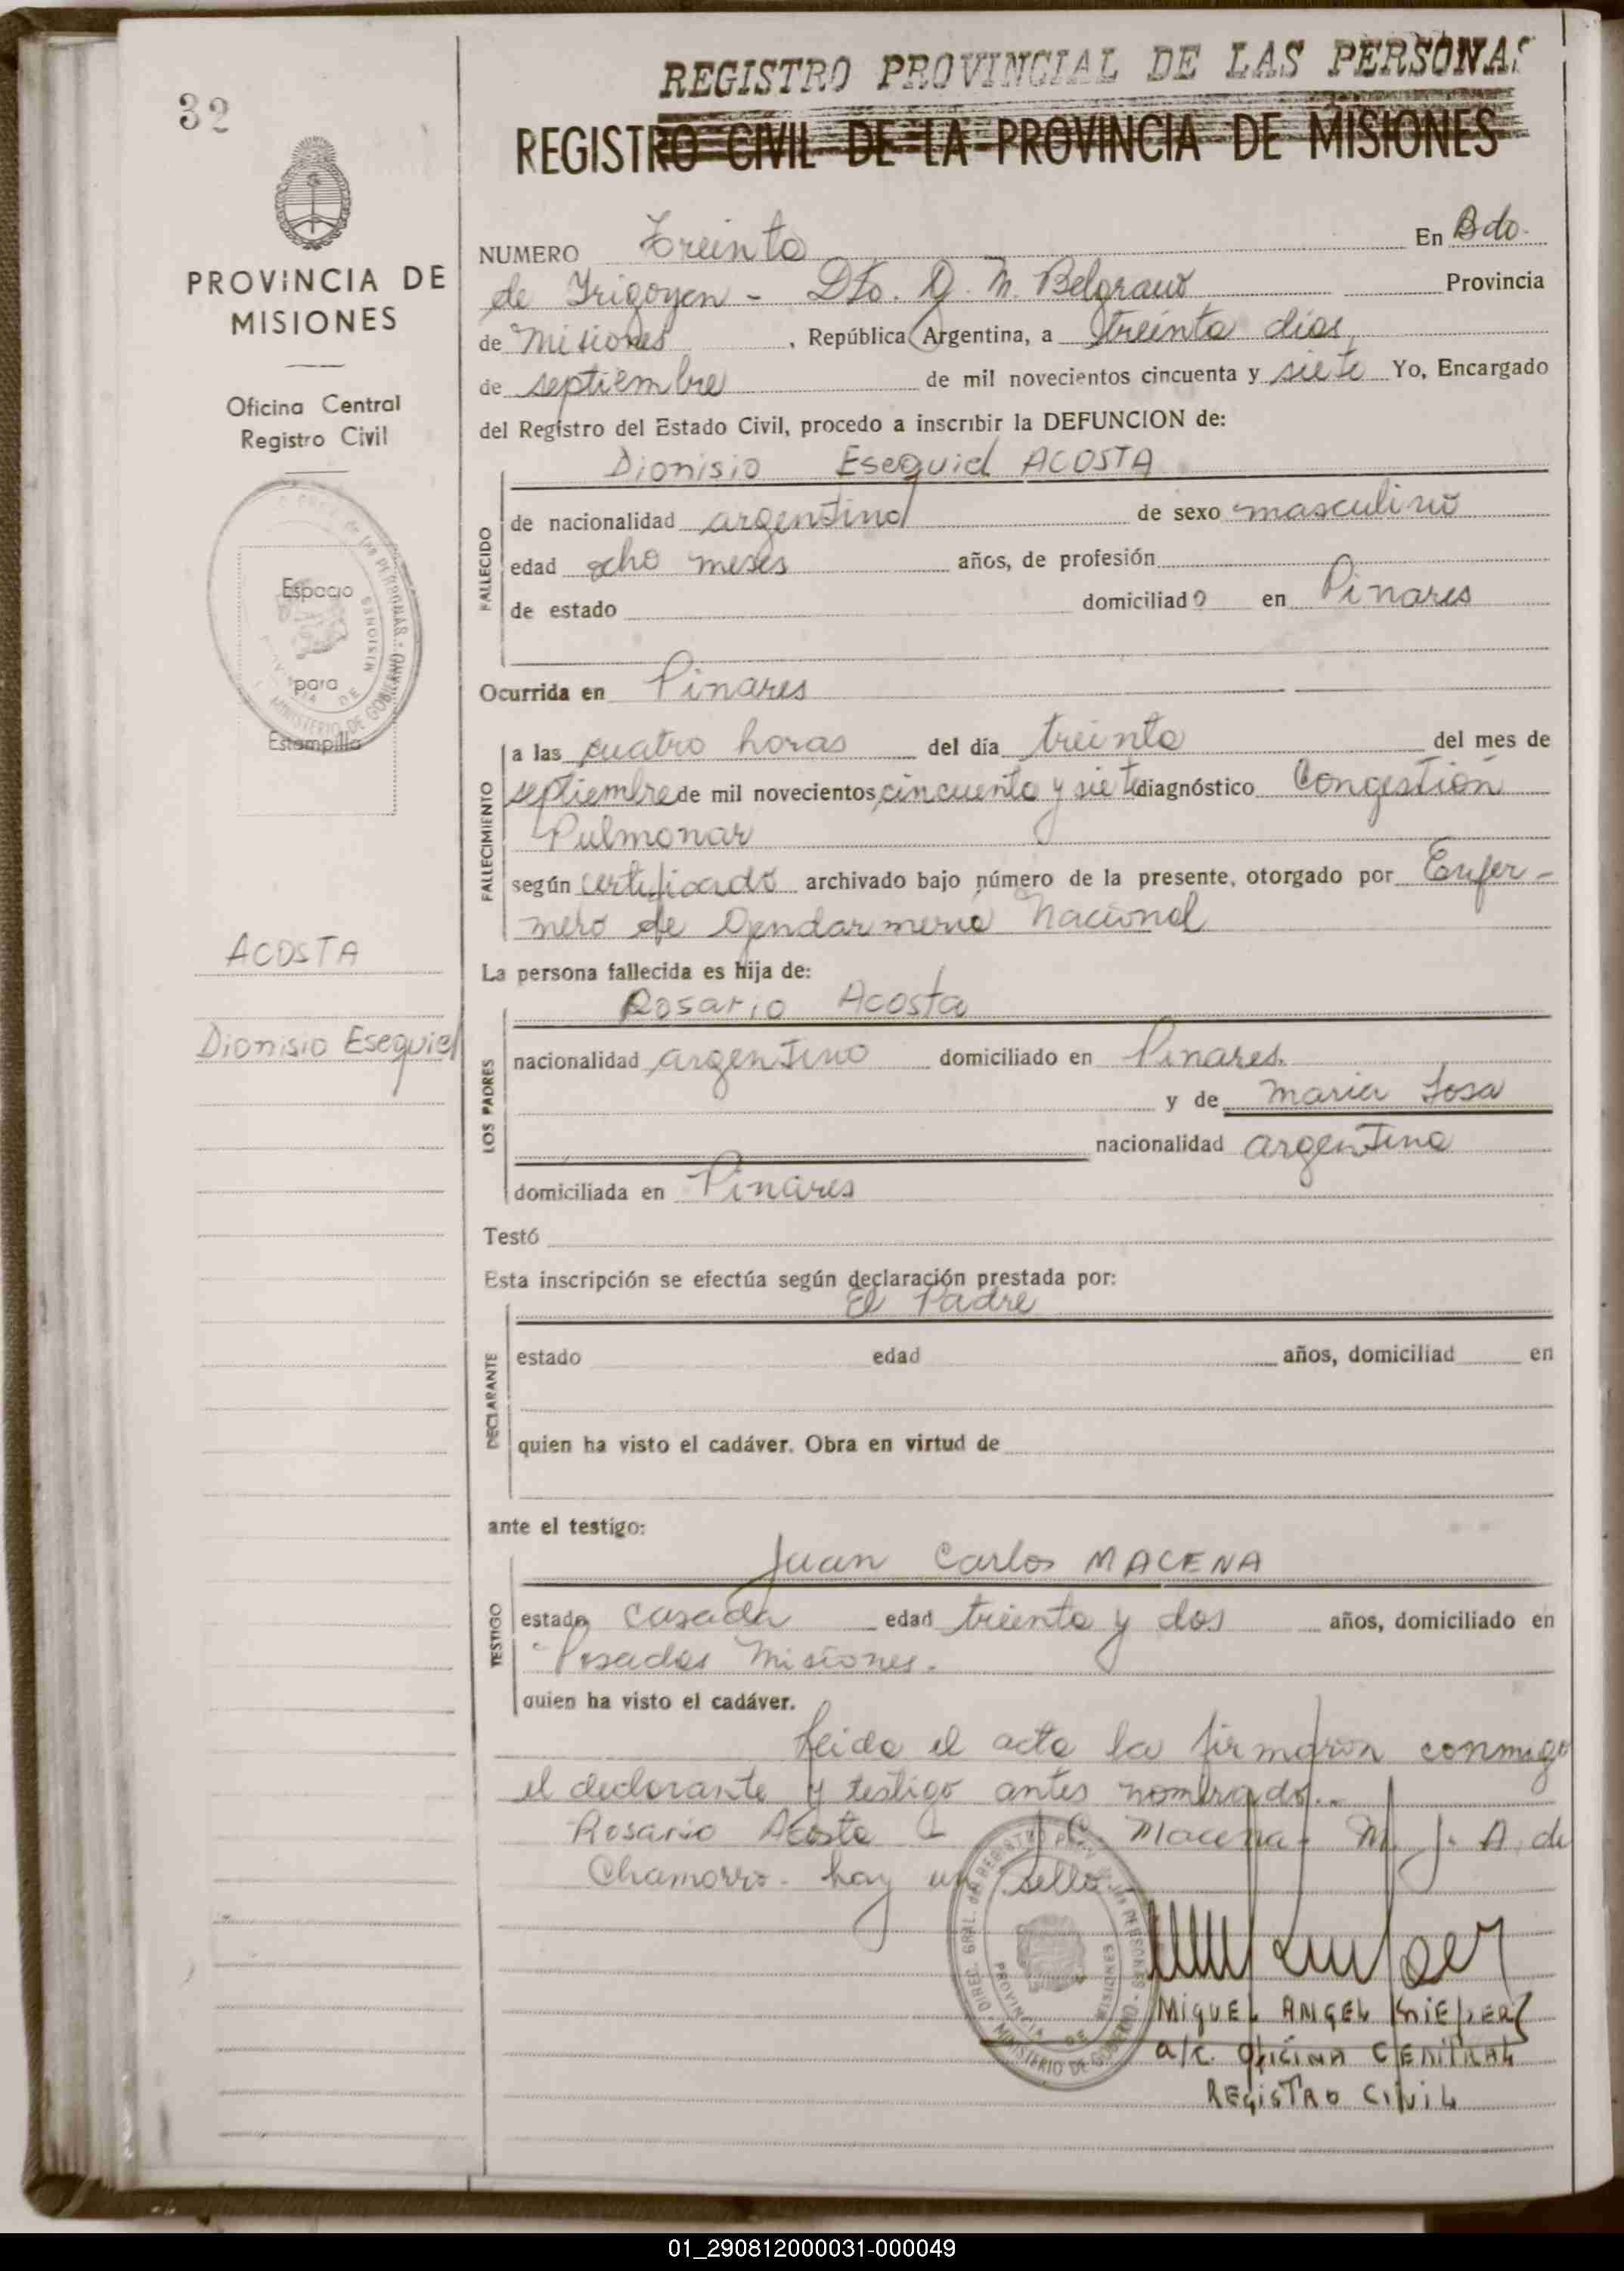 32
PROVINCIA DE
MISIONES
Oficina Central
Registro Civil
Espacio
para
Estampilla
ACOSTA
Dionisio Esequiel
REGISTRO PROVINCIAL DE LAS PERSONAS
REGISTRO CIVIL DE LA PROVINCIA DE MISIONES
NUMERO Treinta En Bdo.
de Yrigoyen - Dto. G. M. Belgrano Provincia
de Misiones, República Argentina, a treinta días
de septiembre de mil novecientos cincuenta y siete Yo, Encargado
del Registro del Estado Civil, procedo a inscribir la DEFUNCION de:
Dionisio Esequiel ACOSTA
FALLECIDO
de nacionalidad argentino de sexo masculino
edad ocho meses años, de profesión
de estado domiciliado en Pinares
Ocurrida en Pinares
FALLECIMIENTO
a las cuatro horas del día treinta del mes de
septiembre de mil novecientos cincuenta y siete diagnóstico Congestión
Pulmonar
según certificado archivado bajo número de la presente, otorgado por Enfer-
mero de Gendarmeria Nacional
La persona fallecida es hija de:
Rosario Acosta
LOS PADRES
nacionalidad argentino domiciliado en Pinares.
y de Maria Sosa
nacionalidad argentina
domiciliada en Pinares
Testó
Esta inscripción se efectúa según declaración prestada por:
El Padre
DECLARANTE
estado edad años, domiciliad en
quien ha visto el cadáver. Obra en virtud de
ante el testigo:
Juan Carlos MACENA
TESTIGO
estado casada edad treinta y dos años, domiciliado en
Posadas Misiones.
quien ha visto el cadáver.
Leida el acta la firmaron conmigo
el declarante y testigo antes nombrado.-
Rosario Acosta J C Macena - M. J. A. de
Chamorro - hay un sello.-
DIREC. GRAL. del REGISTRO PROV. de las PERSONAS - MINISTERIO DE GOBIERNO
PROVINCIA DE MISIONES
MIGUEL ANGEL
a/c. OFICINA CENTRAL
REGISTRO CIVIL
01_290812000031-000049